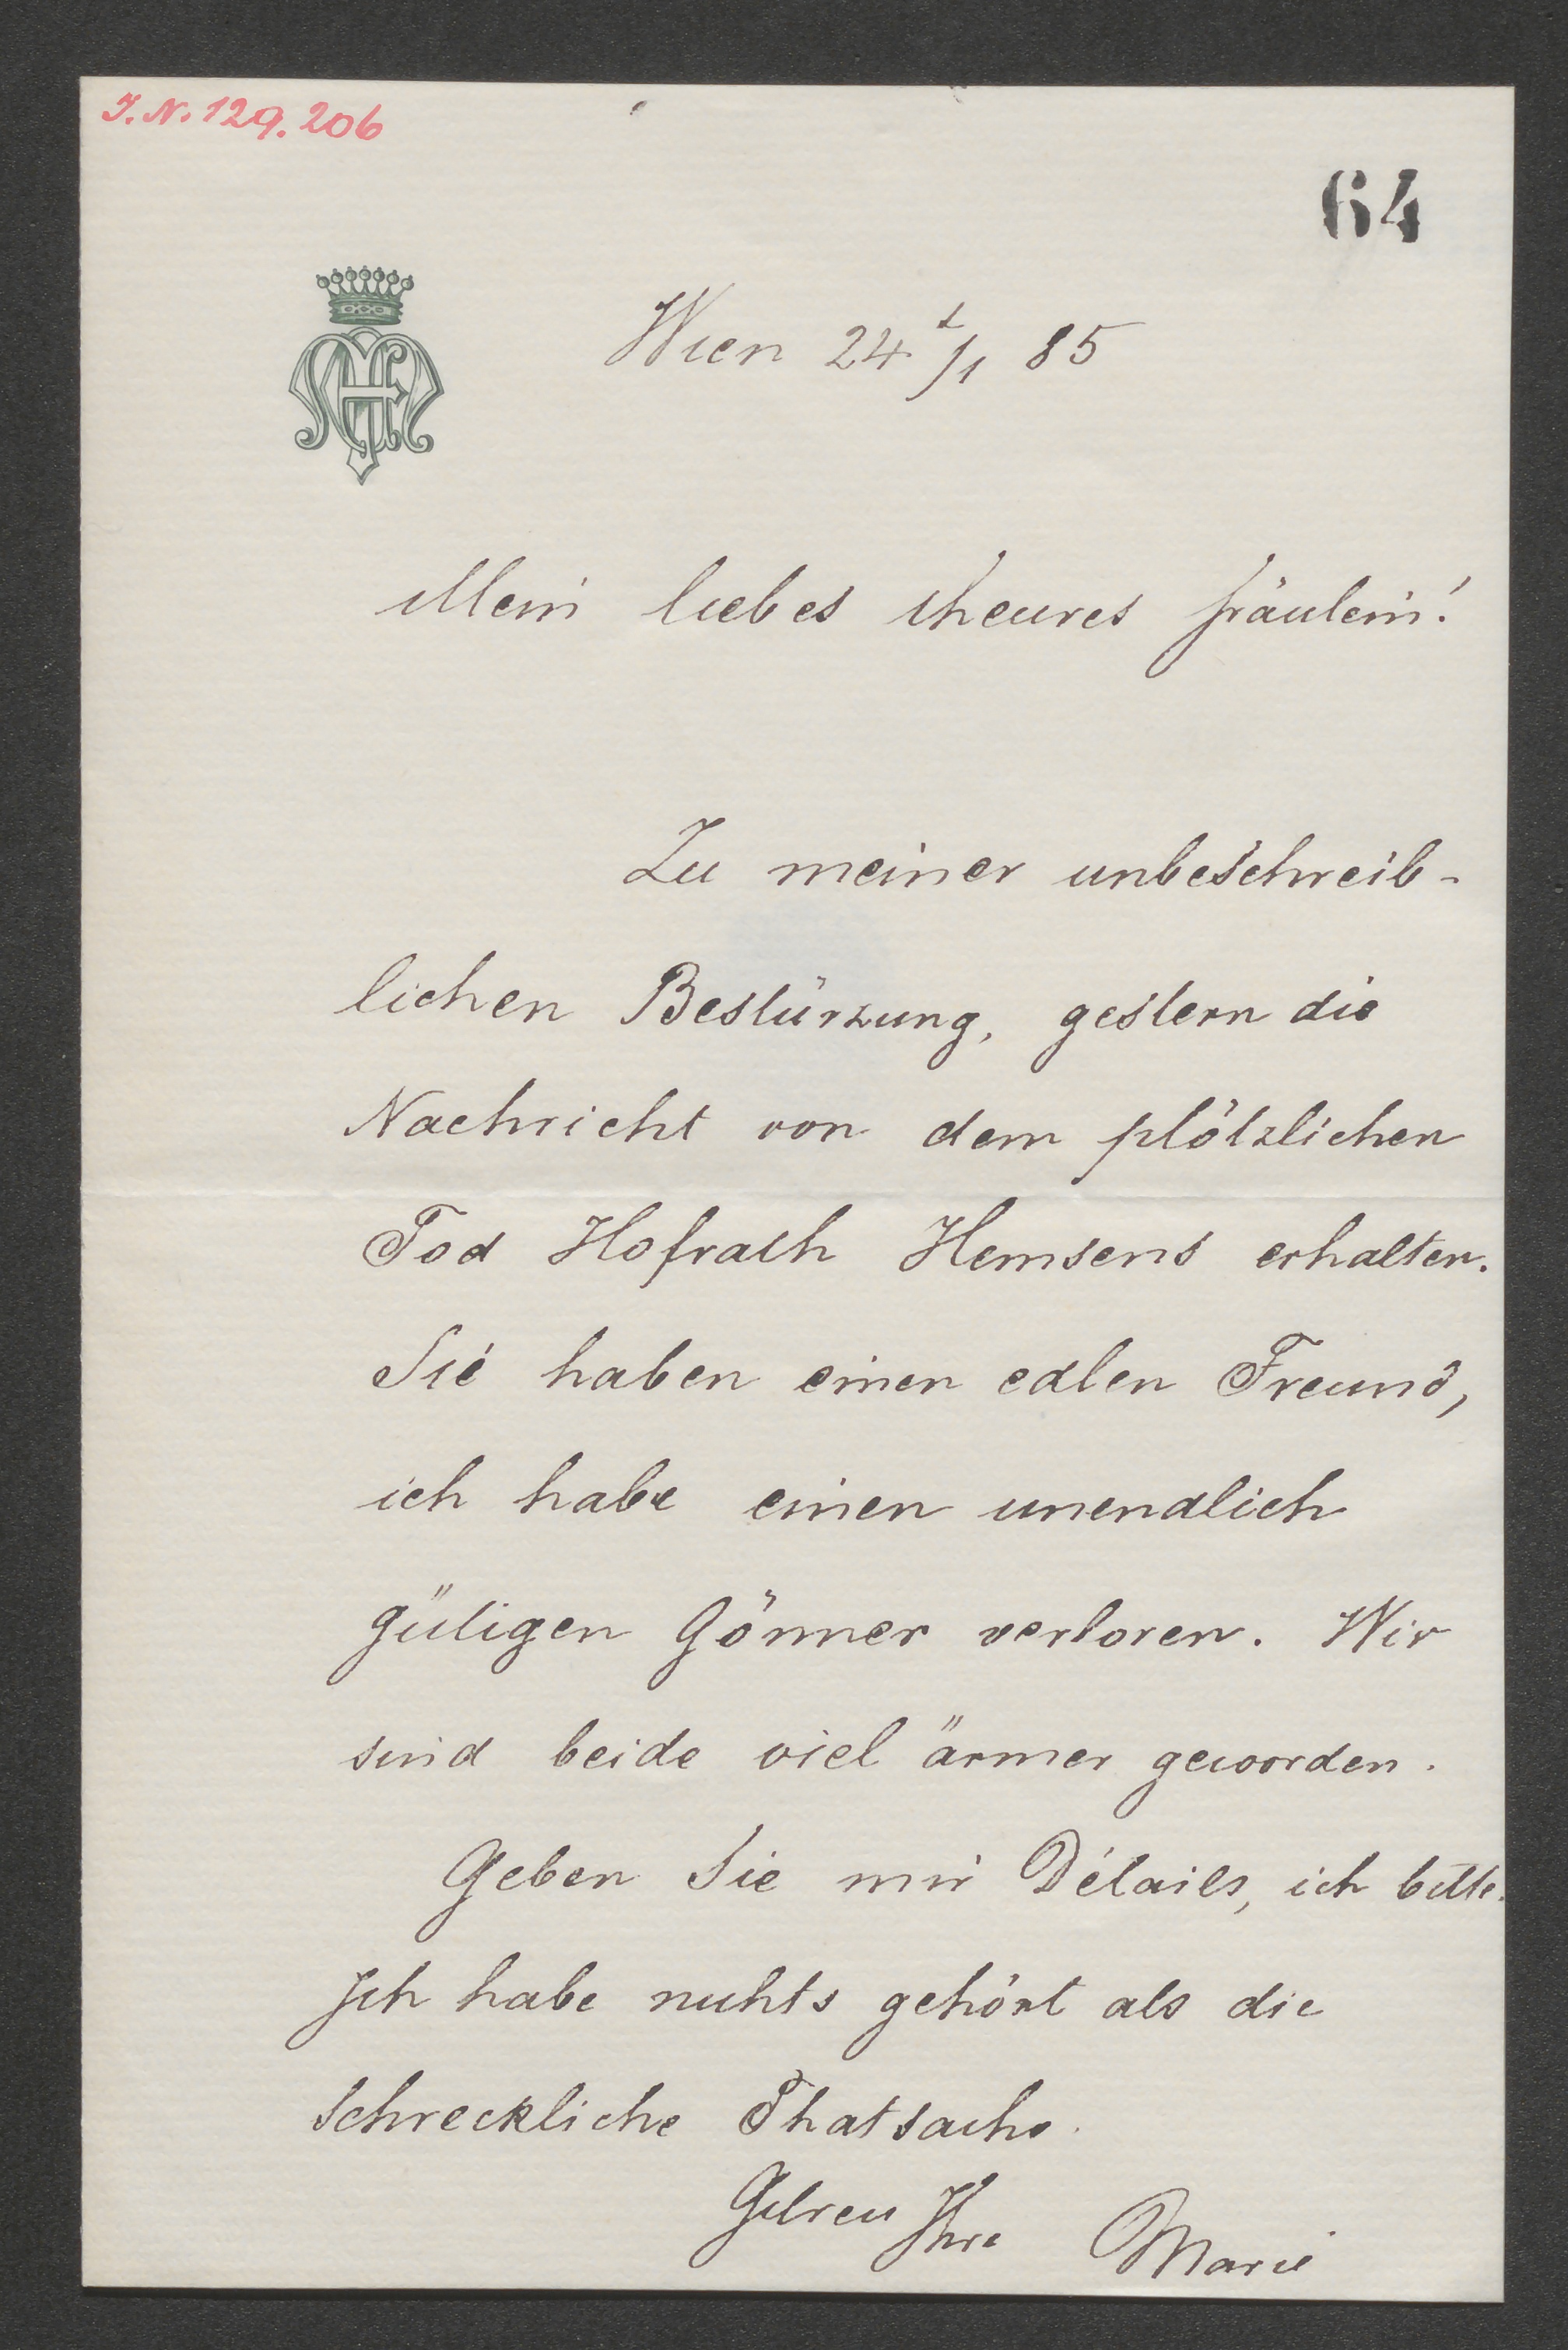 I.N. 129.206
64
Wien 24t/1 85
Mein liebes theures Fräulein!
Zu meiner unbeschreib-
lichen Bestürzung, gestern die
Nachricht von dem plötzlichen
Tod Hofrath Hemsens erhalten.
Sie haben einen edlen Freund,
ich habe einen unendlich
gütigen Gönner verloren. Wir
sind beide viel ärmer geworden.
Geben Sie mir Détails, ich bitte.
Ich habe nichts gehört als die
schreckliche Thatsache.
Getreu Ihre Marie